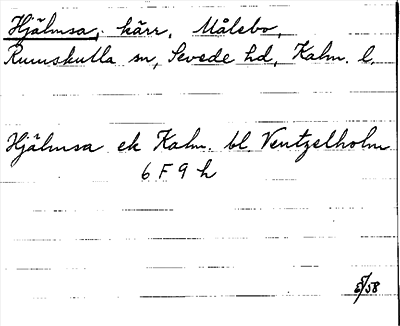 Hjälmsa, kärr, Målebo,
Rumskulla sn, Sevede hd, Kalm. l.
Hjälmsa ek Kalm. bl. Ventzelholm
6 F 9 h
/58